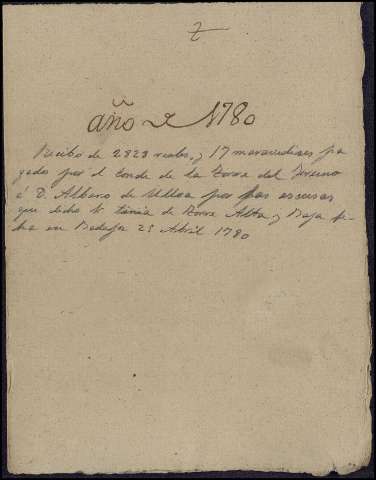 2
año de 1780
Recibo de 2823 reales, y 17 maravedises pa
gados por el Conde de la Torre del Fresno
á D. Alvaro de Ulloa por las escusas
que dicho Sr tenia de Torre Alta y Baja fe-
cha en Badajoz 25 Abril 1780